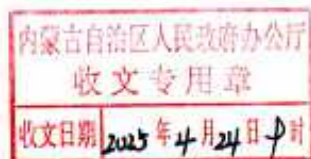 内蒙古自治区人民政府办公厅
收文专用章
收文日期 2025年4月24日9时